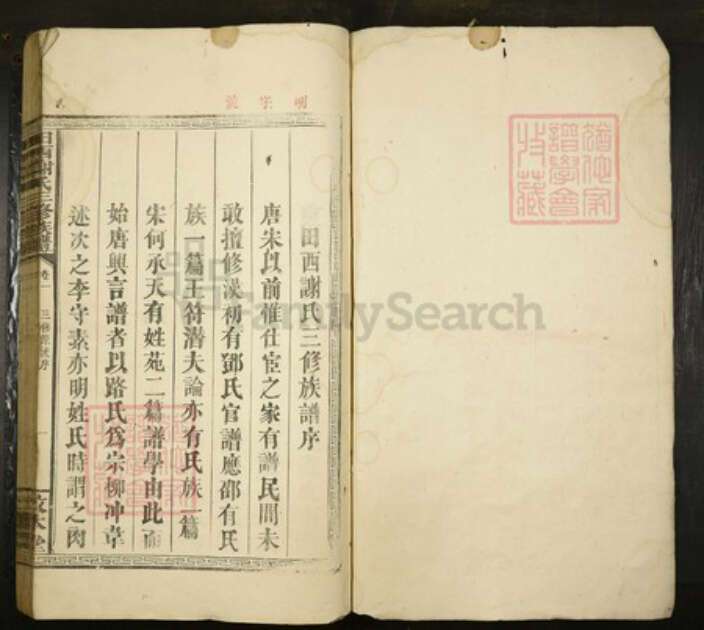 明字號
田西謝氏三修族譜序
唐宋以前惟仕宦之家有譜民間未
敢擅修漢初有鄧氏官譜應邵有氏
族一篇王符潛夫論亦有氏族一篇
宋何承天有姓苑二篇譜學由此而
始唐興言譜者以路氏爲宗柳冲韋
述次之李守素亦明姓氏時謂之肉
田西謝氏三修族譜
卷一
三修
序
敦本堂
譜學會
收藏
FamilySearch